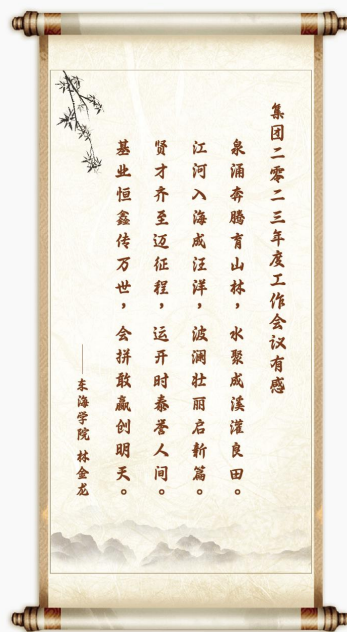 集团二零二三年度工作会议有感
泉涌奔腾育山林，水聚成溪灌良田。
江河入海成汪洋，波澜壮丽启新篇。
贤才齐至迈征程，运开时泰誉人间。
基业恒鑫传万世，会拼敢赢创明天。
——东海学院 林金龙